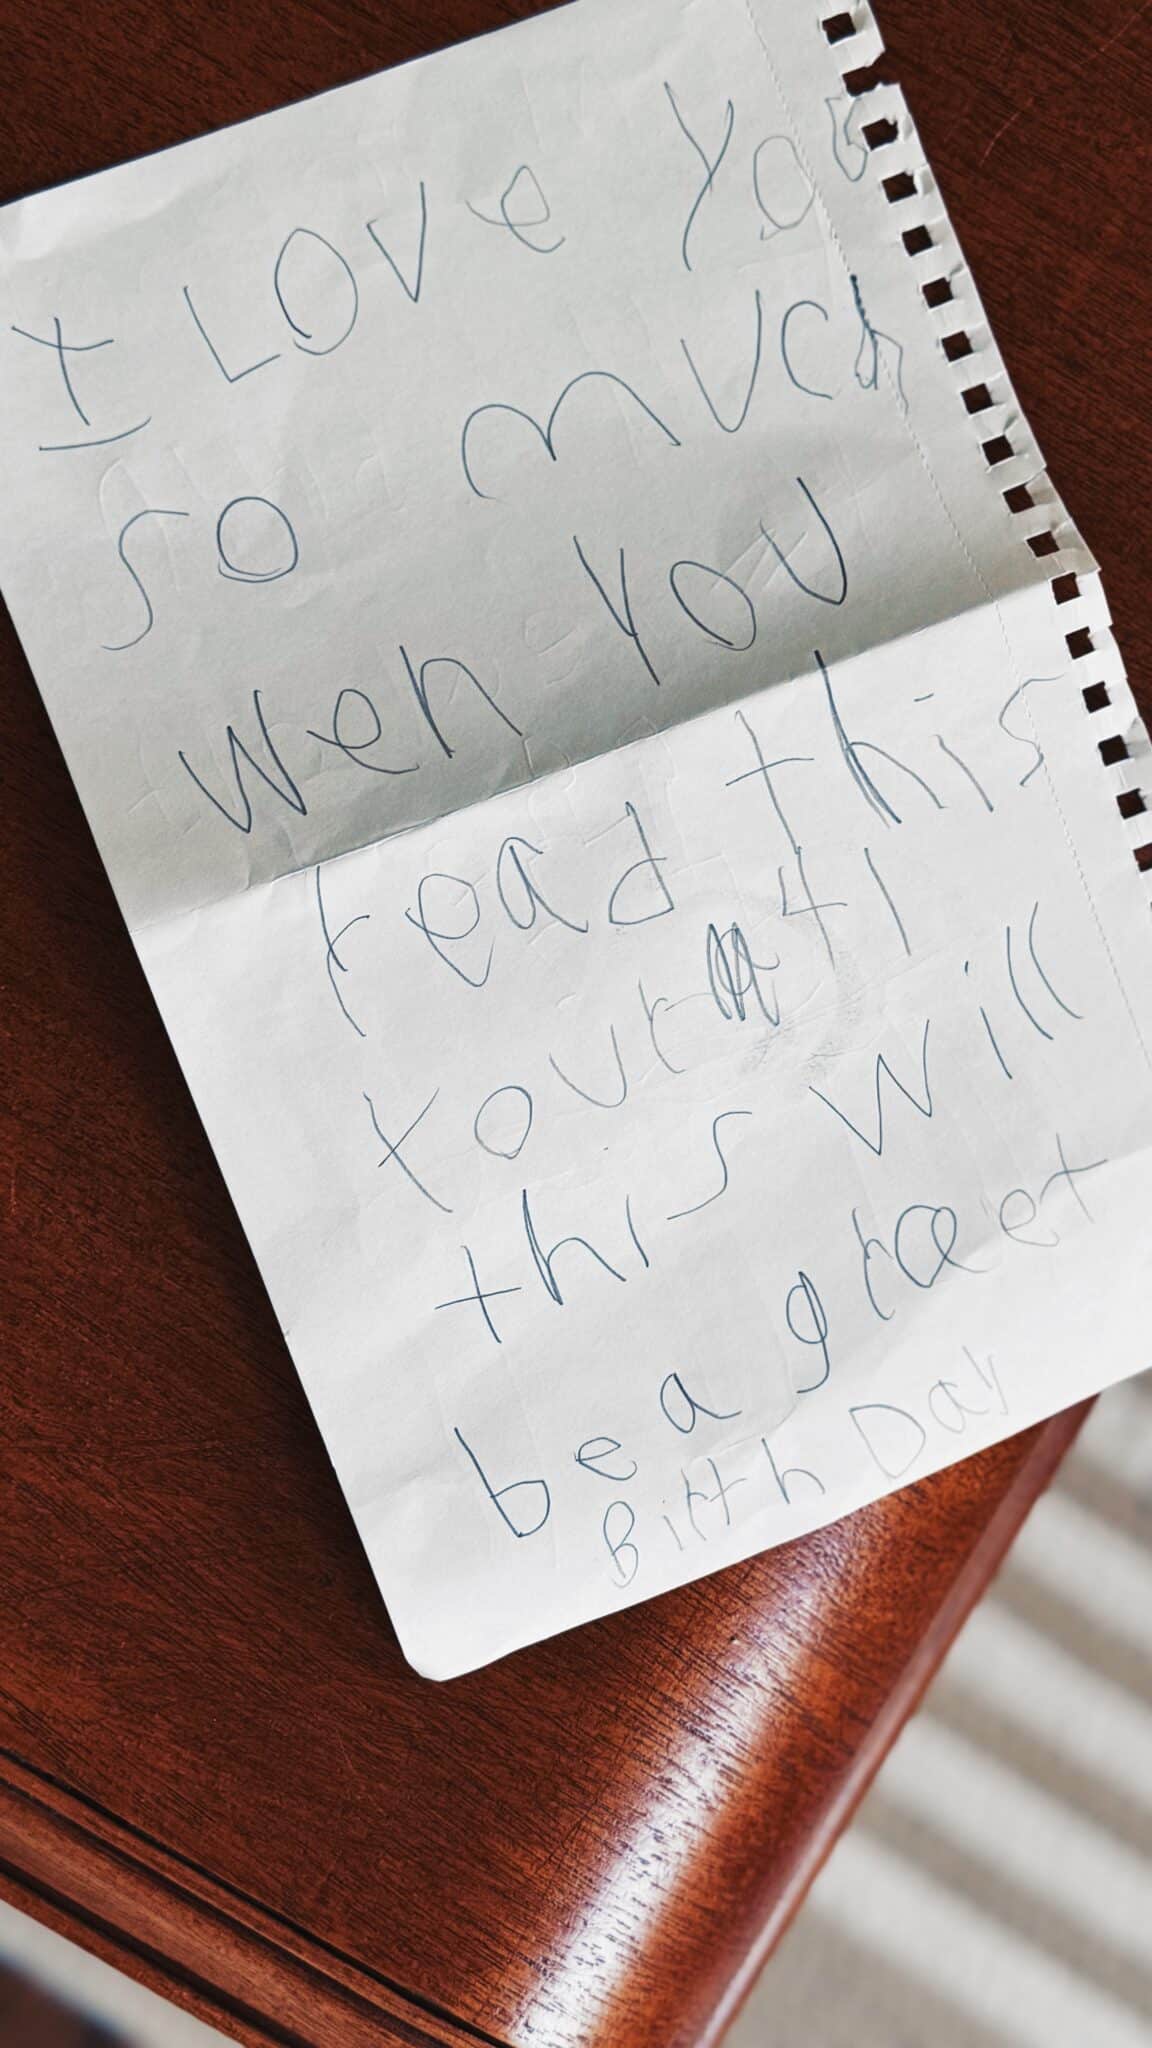 I LOVe You
so mUch
wen YoU
read this
Your 41
this will
be a graeet
Birth Day